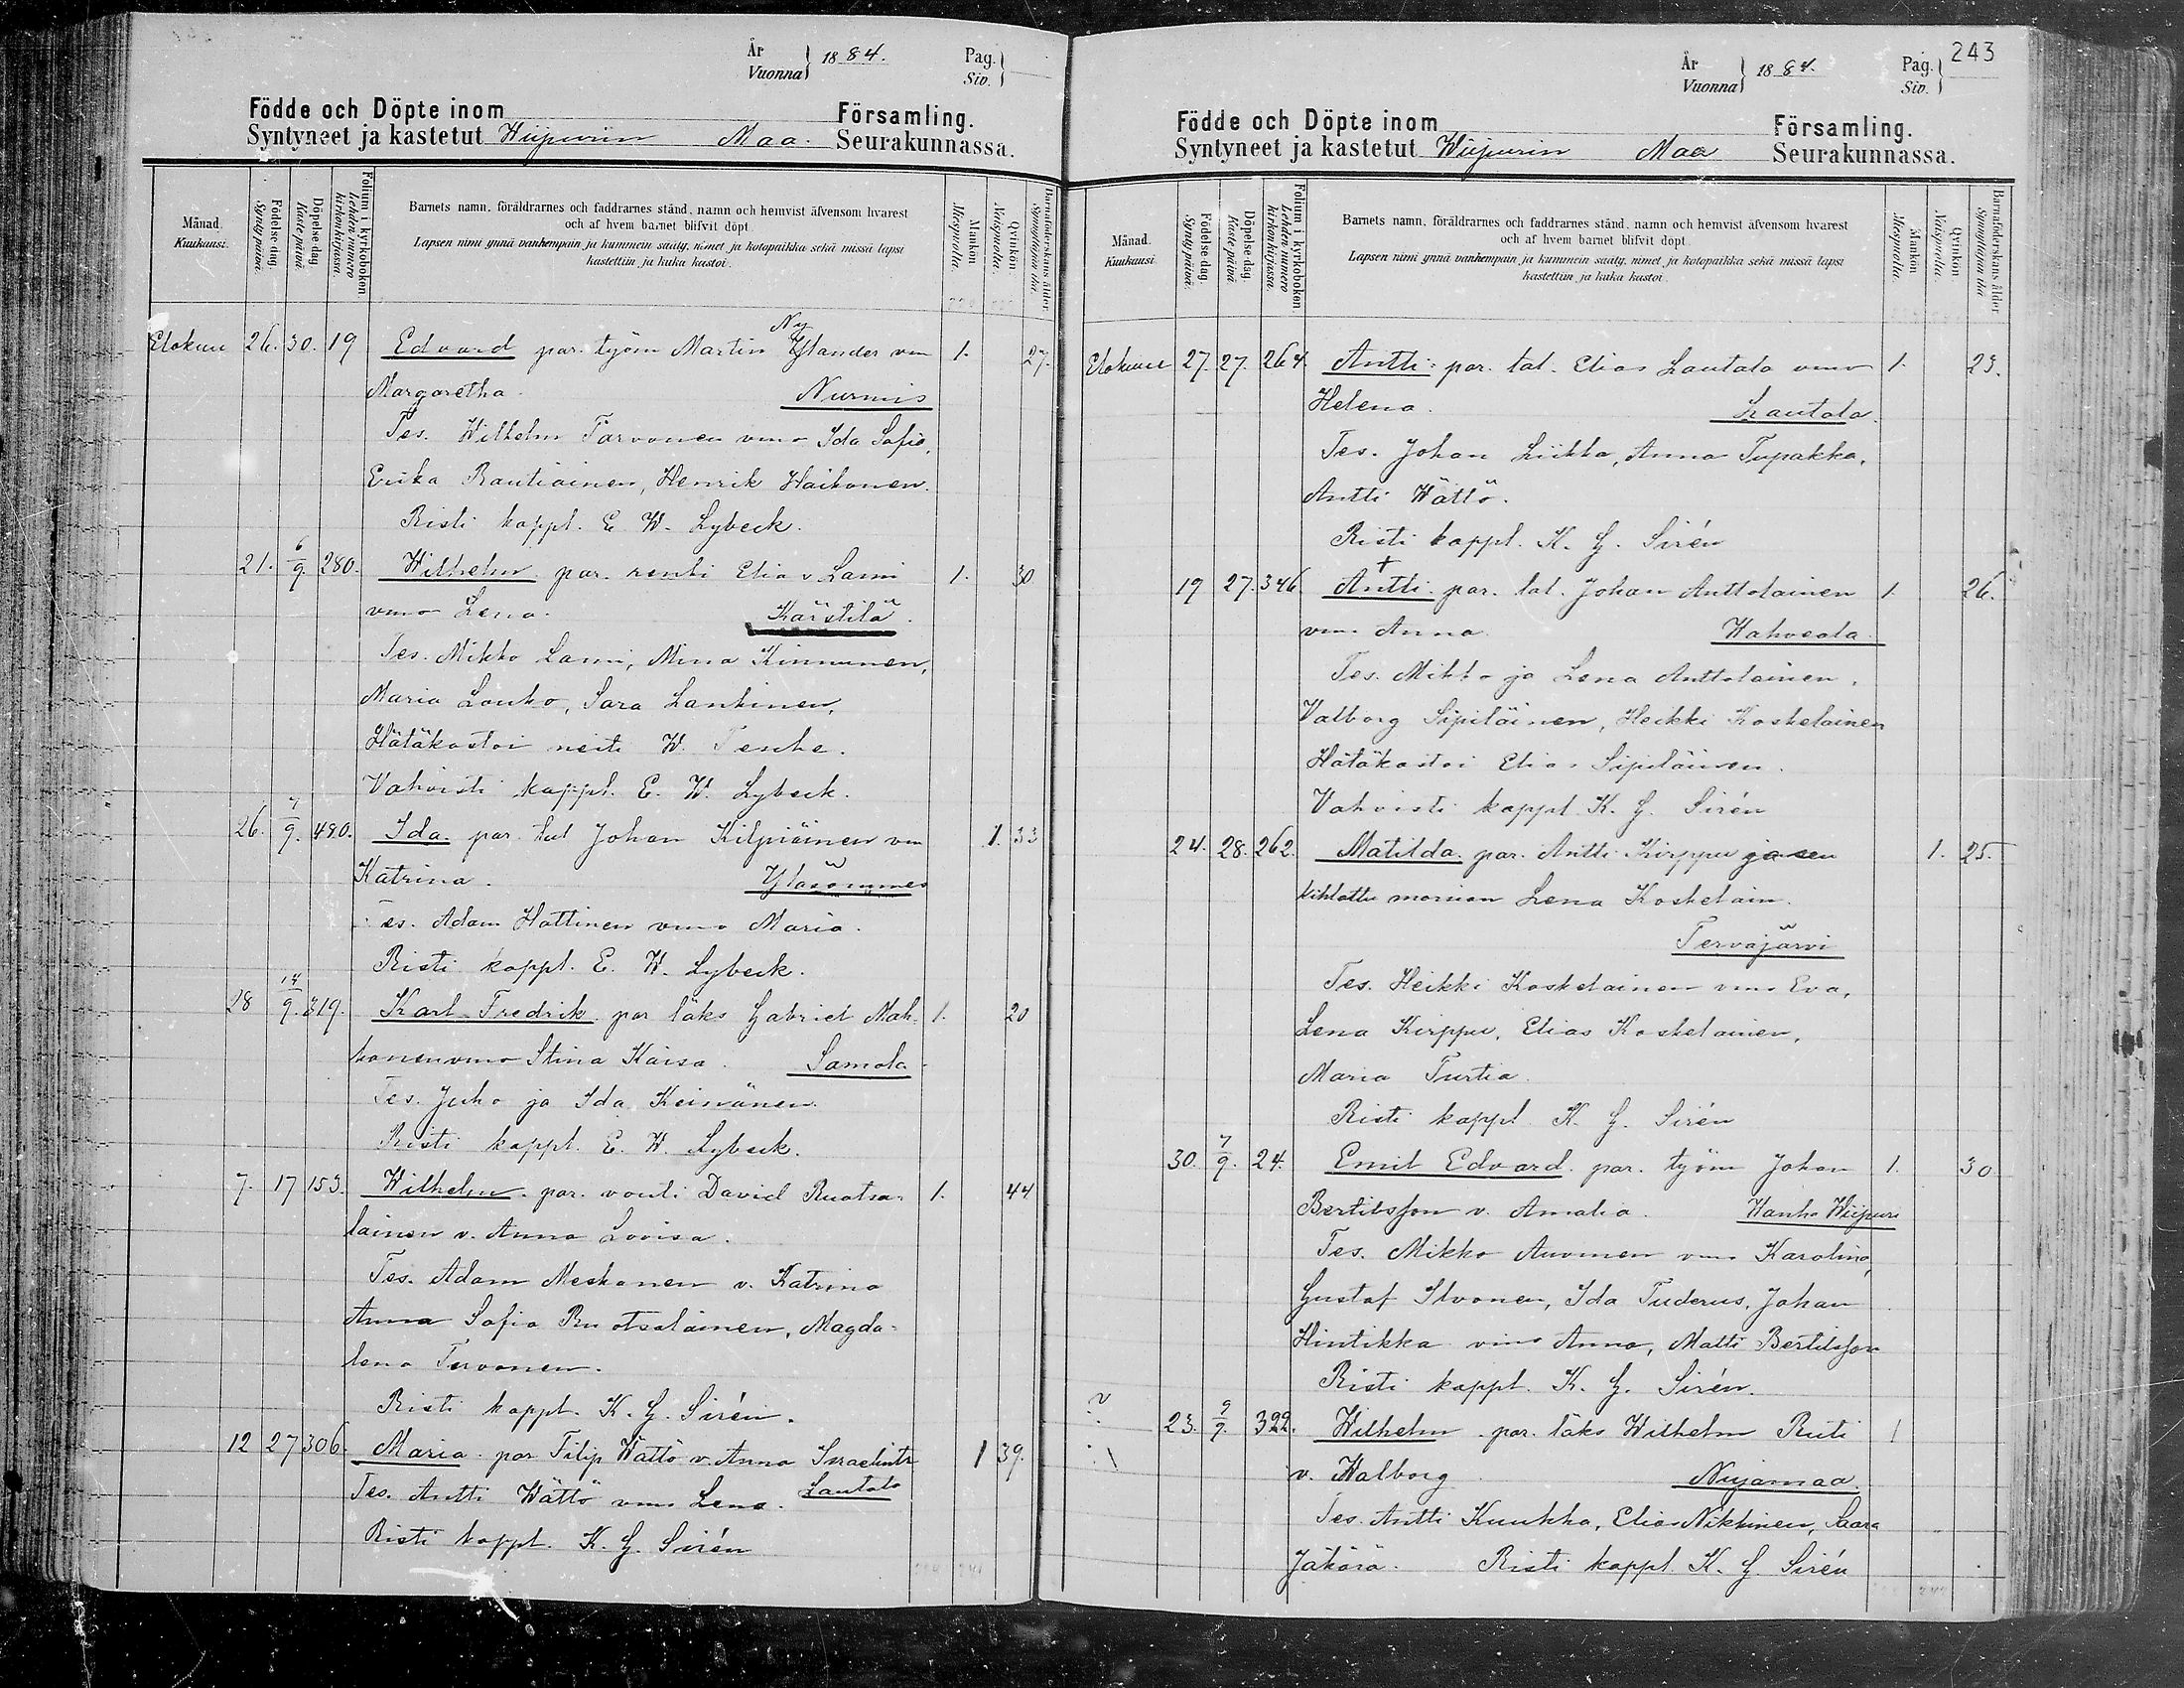 År
Vuonna } 1884. Pag.
Siv.
Födde och Döpte inom Församling.
Syntyneet ja kastetut Wiipurin Maa. Seurakunnassa.
Månad.
Kuukausi.
Födelse dag.
Synty päivä.
Döpelse dag.
Kaste päivä
Folium i kyrkoboken
Lehden numero
kirkonkirjassa.
Barnets namn, föräldrarnes och faddrarnes stånd, namn och hemvist äfvensom hvarest
och af hvem barnet blifvit döpt.
Lapsen nimi ynnä vanhempain ja kummein sääty, nimet ja kotopaikka sekä missä lapsi
kastettiin ja kuka kastoi.
Mankön
Miespuolia.
Qvinkön
Naispuolia.
Barnaföderskans ålder
Synnyttäjän ikä
Elokuu 26. 30. 19 Edvard par. työm Martin Nylander vm 1. 27.
Margaretha. Nurmis
Tes. Wilhelm Tarvonen vmo Ida Sofia,
Erika Rautiainen, Henrik Haikonen.
Risti kappl. E. W. Lybeck.
21. 6/9. 280. Wilhelm. par. renki Elias Lami 1. 30
vmo Lena. Kärstilä.
Tes. Mikko Lami, Mina Kinnunen,
Maria Louko, Sara Lankinen,
Hätäkastoi neiti W. Tesche.
Vahvisti kappl. E. W. Lybeck.
26. 7/9. 490. Ida. par. tal Johan Kilpiäinen vm 1. 33
Katrina. Yläsommee
Tes. Adam Hattinen vmo Maria.
Risti kappl. E. W. Lybeck.
28 14/9. 319. Karl Fredrik. par läks Gabriel Mah- 1. 20
konen vmo Stina Kaisa. Samola
Tes. Juho ja Ida Keinänen.
Risti kappl. E. W. Lybeck.
7. 17 153. Wilhelm. par. vouti David Ruotsa- 1. 44
lainen v. Anna Lovisa.
Tes. Adam Meskanen v. Katrina
Anna Sofia Ruotsalainen, Magda-
lena Tervonen.
Risti kappl. K. G. Sirén.
12 27 306. Maria. par Filip Wättö v. Anna Israelintr 1 39.
Tes. Antti Wättö vmo Lena. Lautala
Risti kappl. K. G. Sirén
År
Vuonna } 1884. Pag.
Siv. } 243
Födde och Döpte inom Församling.
Syntyneet ja kastetut Wiipurin Maa Seurakunnassa.
Månad.
Kuukausi
Födelse dag.
Synty päivä.
Döpelse dag.
Kaste päivä
Folium i kyrkoboken
Lehden numero
kirkonkirjassa.
Barnets namn, föräldrarnes och faddrarnes stånd, namn och hemvist äfvensom hvarest
och af hvem barnet blifvit döpt.
Lapsen nimi ynnä vanhempain ja kummein sääty, nimet ja kotopaikka sekä missä lapsi
kastettiin ja kuka kastoi.
Mankön
Miespuolia.
Qvinkön
Naispuolia.
Barnaföderskans ålder
Synnyttäjän ikä
Elokuu 27. 27. 264. Antti. par. tal. Elias Lautala vmo 1. 23.
Helena. Lautala.
Tes. Johan Liikka, Anna Tupakka,
Antti Wättö.
Risti kappl. K. G. Sirén
†
19 27. 346. Antti. par. tal. Johan Anttolainen 1. 26.
vmo Anna. Kahveala
Tes. Mikko ja Lena Anttolainen,
Valborg Sipiläinen, Heikki Koskelainen
Hätäkastoi Elias Sipiläinen.
Vahvisti kappl K. G. Sirén
24. 28. 262. Matilda. par. Antti Kirppu ja sen 1. 25.
kihlattu morsian Lena Koskelain.
Tervajärvi
Tes. Heikki Koskelainen vmo Eva,
Lena Kirppu, Elias Koskelainen,
Maria Turtia.
Risti kappl K. G. Sirén
30. 7/9. 24. Emil Edvard. par. työm Johan 1. 30
Bertilsson v. Amalia. Wanha Wiipuri
Tes. Mikko Auvinen vmo Karolina,
Gustaf Ilvonen, Ida Tuderus, Johan
Hintikka vmo Anna, Matti Bertilsson
Risti kappl. K. G. Sirén.
23. 9/9. 322. Wilhelm. par. läks Wilhelm Ruti 1
v. Walborg Nuijamaa.
Tes. Antti Kuukka, Elias Nikkinen, Saara
Jäkärä. Risti kappl. K. G. Sirén